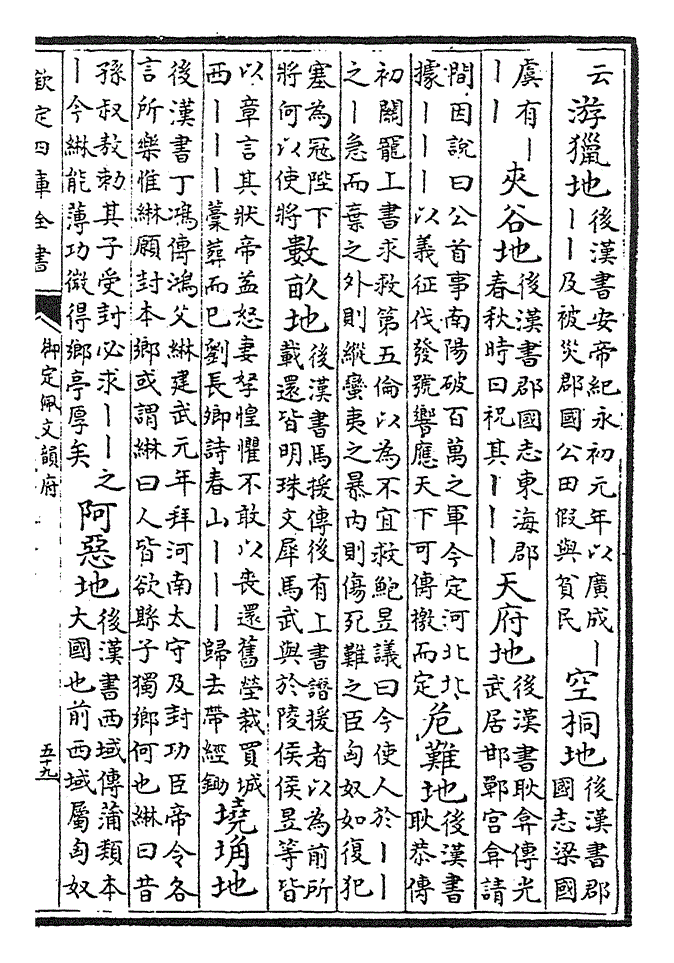 云
游獵地
後漢書安帝紀永初元年以廣成丨
丨丨及被災郡國公田假與貧民
空桐地
後漢書郡
國志梁國
虞有丨
丨丨
夾谷地
後漢書郡國志東海郡
春秋時曰祝其丨丨丨
天府地
後漢書耿弇傳光
武居邯鄲宮弇請
間因說曰公首事南陽破百萬之軍今定河北北
據丨丨丨以義征伐發號響應天下可傳檄而定
危難地
後漢書
耿恭傳
初關寵上書求救第五倫以為不宜救鮑昱議曰今使人於丨丨
之丨急而棄之外則縱蠻夷之暴内則傷死難之臣匈奴如復犯
塞為寇陛下
將何以使將
數畝地
後漢書馬援傳後有上書譖援者以為前所
載還皆明珠文犀馬武與於陵侯侯昱等皆
以章言其狀帝益怒妻孥惶懼不敢以喪還舊塋裁買城
西丨丨丨藁葬而已劉長卿詩春山丨丨丨歸去帶經鋤
墝埆地
後漢書丁鴻傳鴻父綝建武元年拜河南太守及封功臣帝令各
言所樂惟綝願封本鄉或謂綝曰人皆欲縣子獨鄉何也綝曰昔
孫叔敖勅其子受封必求丨丨之
丨今綝能薄功微得鄉亭厚矣
阿惡地
後漢書西域傳蒲類本
大國也前西域屬匈奴
欽定四庫全書
御定佩文韻府
五十九